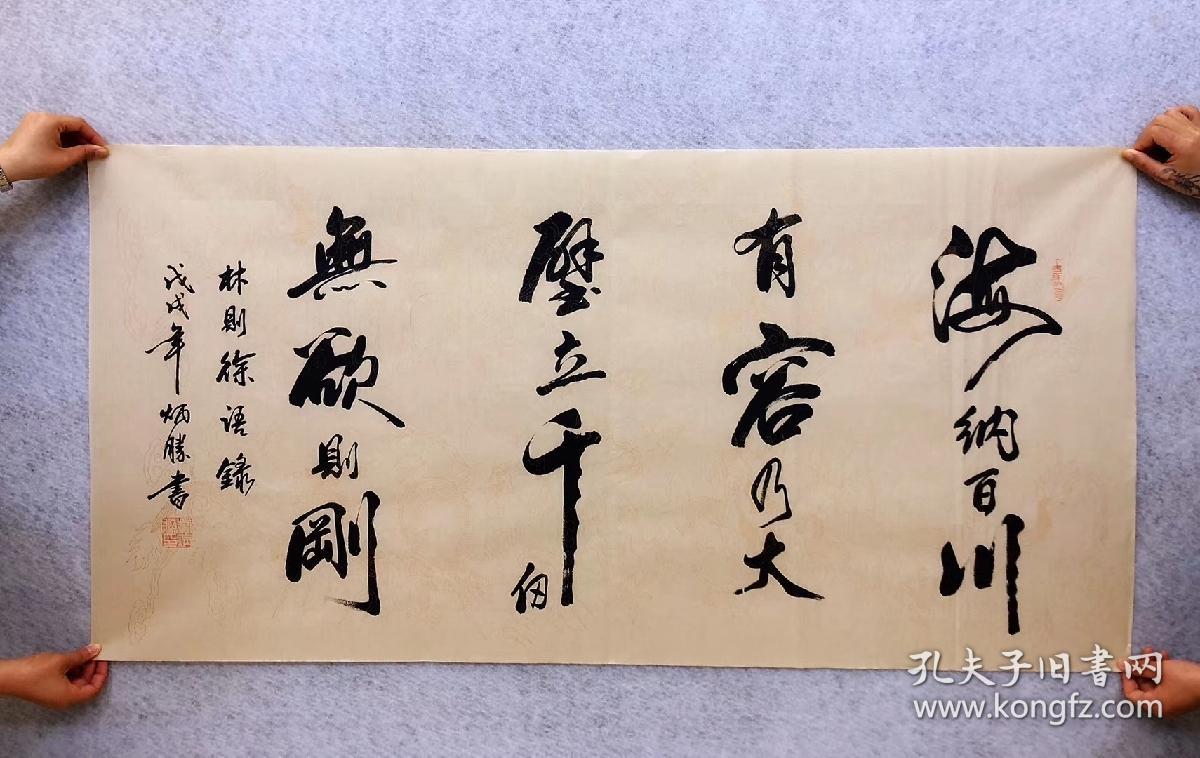 海纳百川
有容乃大
壁立千仞
無欲則剛
林則徐语錄
戊戌年炳勝書
孔夫子旧书网
www.kongfz.com